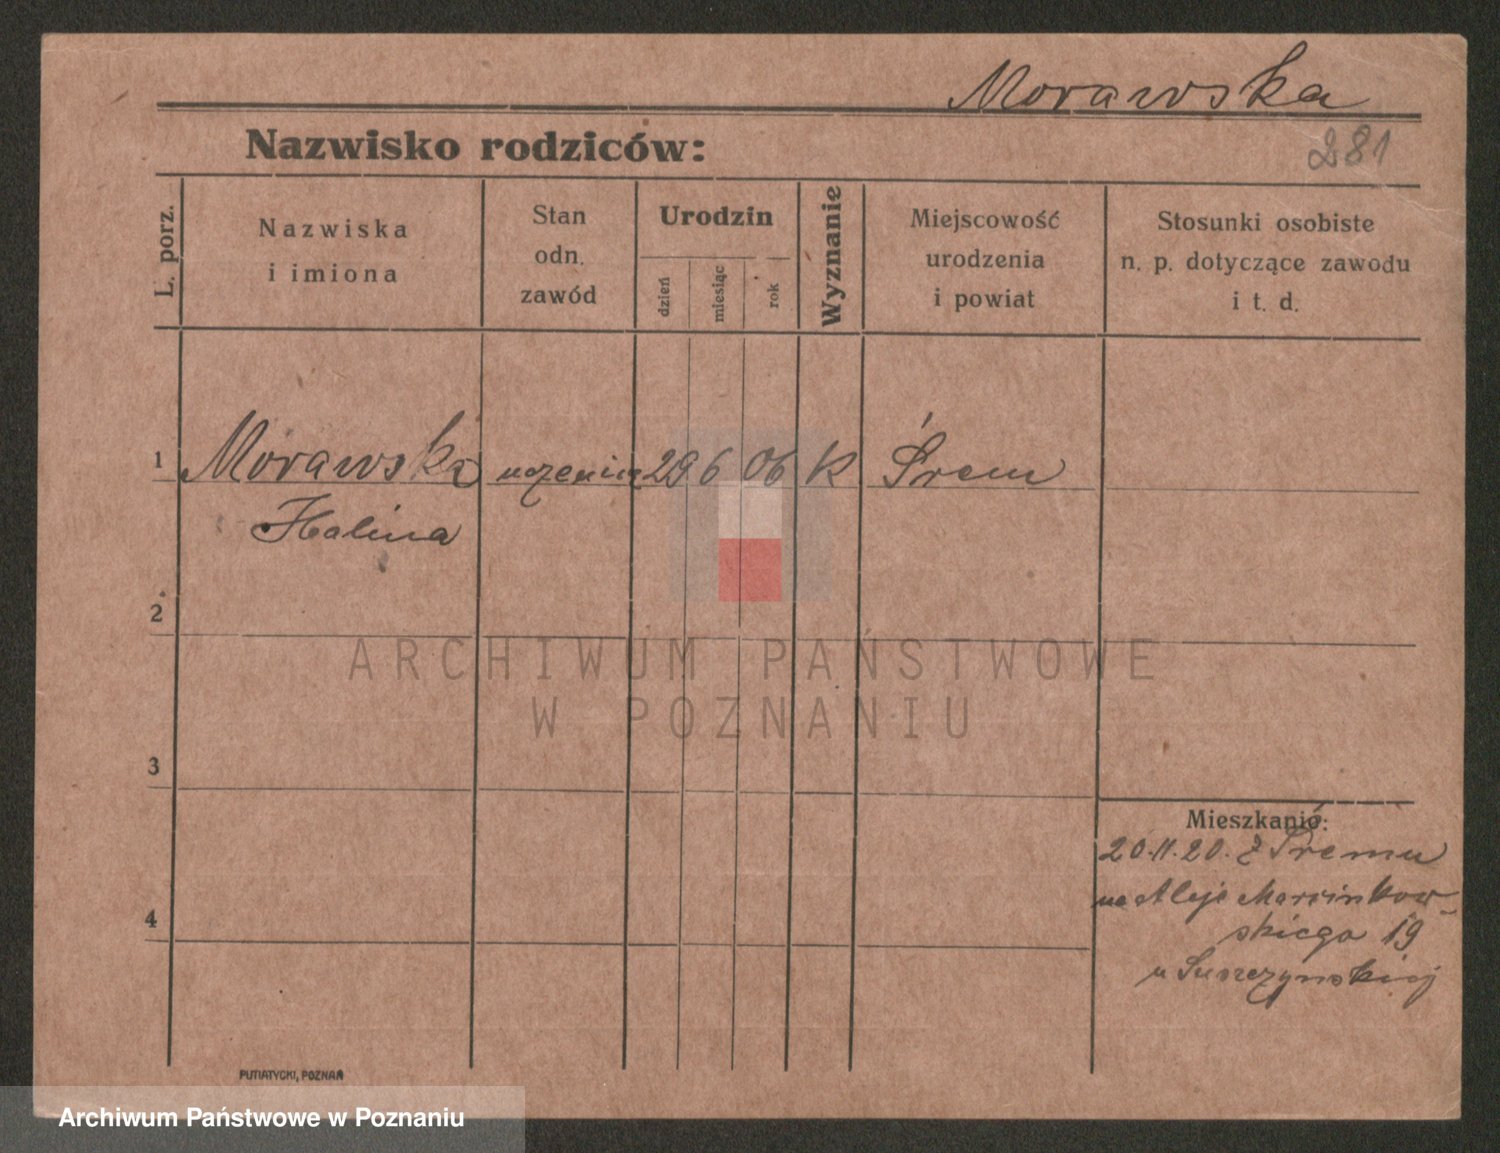 Morawska
281
Nazwisko rodziców:
L. porz.
Nazwiska
i imiona
Stan
odn.
zawód
Urodzin
dzień
miesiąc
rok
Wyznanie
Miejscowość
urodzenia
i powiat
Stosunki osobiste
n. p. dotyczące zawodu
i t. d.
1 Morawska uczenica 29 6 06 K Śrem
Halina
2
ARCHIWUM PAŃSTWOWE
W POZNANIU
3
Mieszkanie:
20.11.20. z Śremu
na Aleje Marcinkow-
skiego 19
u Suszczyńskiej
4
PUTIATYCKI, POZNAŃ
Archiwum Państwowe w Poznaniu